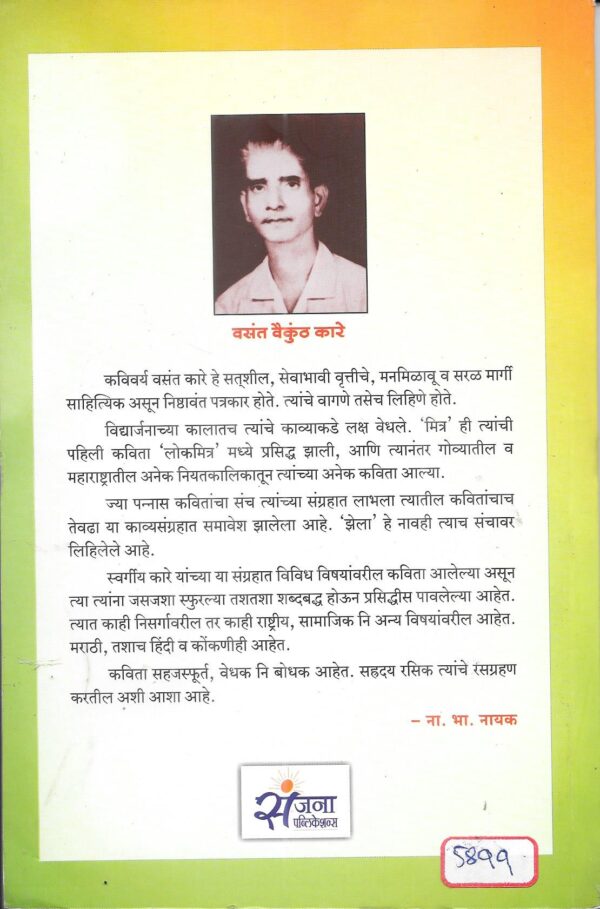 वसंत वैकुंठ कारे
कविवर्य वसंत कारे हे सत्‌शील, सेवाभावी वृत्तीचे, मनमिळावू व सरळ मार्गी
साहित्यिक असून निष्ठावंत पत्रकार होते. त्यांचे वागणे तसेच लिहिणे होते.
विद्यार्जनाच्या कालातच त्यांचे काव्याकडे लक्ष वेधले. ‘मित्र’ ही त्यांची
पहिली कविता ‘लोकमित्र’ मध्ये प्रसिद्ध झाली, आणि त्यानंतर गोव्यातील व
महाराष्ट्रातील अनेक नियतकालिकातून त्यांच्या अनेक कविता आल्या.
ज्या पन्नास कवितांचा संच त्यांच्या संग्रहात लाभला त्यातील कवितांचाच
तेवढा या काव्यसंग्रहात समावेश झालेला आहे. ‘झेला’ हे नावही त्याच संचावर
लिहिलेले आहे.
स्वर्गीय कारे यांच्या या संग्रहात विविध विषयांवरील कविता आलेल्या असून
त्या त्यांना जसजशा स्फुरल्या तशतशा शब्दबद्ध होऊन प्रसिद्धीस पावलेल्या आहेत.
त्यात काही निसर्गावरील तर काही राष्ट्रीय, सामाजिक नि अन्य विषयांवरील आहेत.
मराठी, तशाच हिंदी व कोंकणीही आहेत.
कविता सहजस्फूर्त, वेधक नि बोधक आहेत. सहृदय रसिक त्यांचे रसग्रहण
करतील अशी आशा आहे.
– ना. भा. नायक
संजना
पब्लिकेशन्स
5899